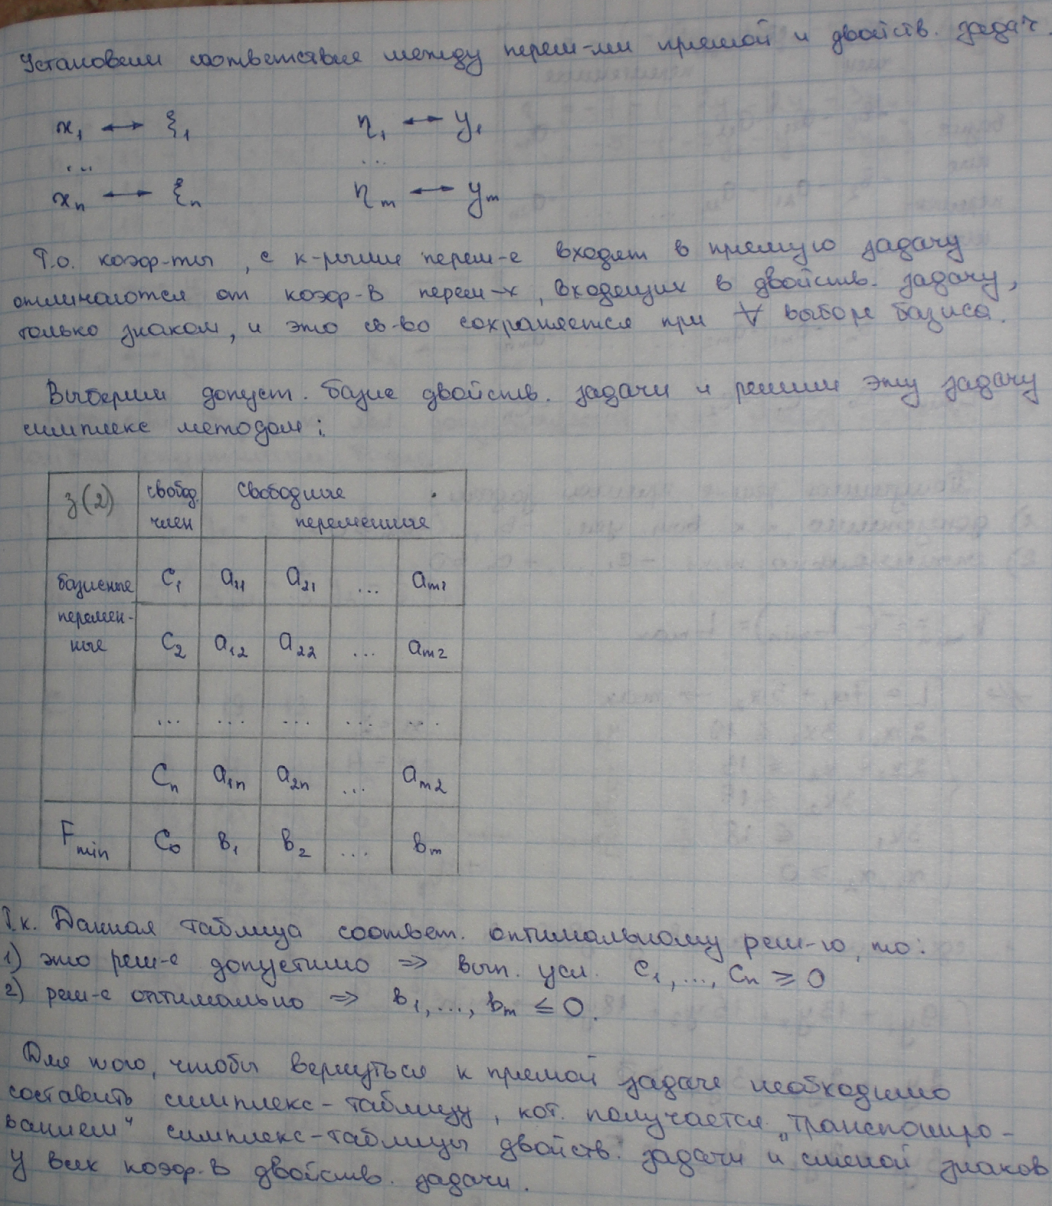 Установим соответствие между перем-ми прямой и двойств. задач.
x₁ ↔ ξ₁ η₁ ↔ y₁
... ...
xₙ ↔ ξₙ ηₘ ↔ yₘ
Т.о. коэф-ты, с к-рыми перем-е входят в прямую задачу
отличаются от коэф-в перем-х, входящих в двойств. задачу,
только знаком, и это св-во сохраняется при ∀ выборе базиса.
Выберем допуст. базис двойств. задачи и решим эту задачу
симплекс методом:
з(2) свобод. член Свободные переменные
базисные перемен-ные c₁ a₁₁ a₂₁ ... aₘ₁
c₂ a₁₂ a₂₂ ... aₘ₂
... ... ... ... ...
cₙ a₁ₙ a₂ₙ ... aₘ₂
Fmin c₀ в₁ в₂ ... вₘ
Т.к. Данная таблица соответ. оптимальному реш-ю, то:
1) это реш-е допустимо ⇒ вып. усл. c₁,...,cₙ ⩾ 0
2) реш-е оптимально ⇒ в₁,...,bₘ ≤ 0.
Для того, чтобы вернуться к прямой задаче необходимо
составить симплекс-таблицу, кот. получается „транспониро-
ванием“ симплекс-таблицы двойств. задачи и сменой знаков
у всех коэф-в двойств. задачи.